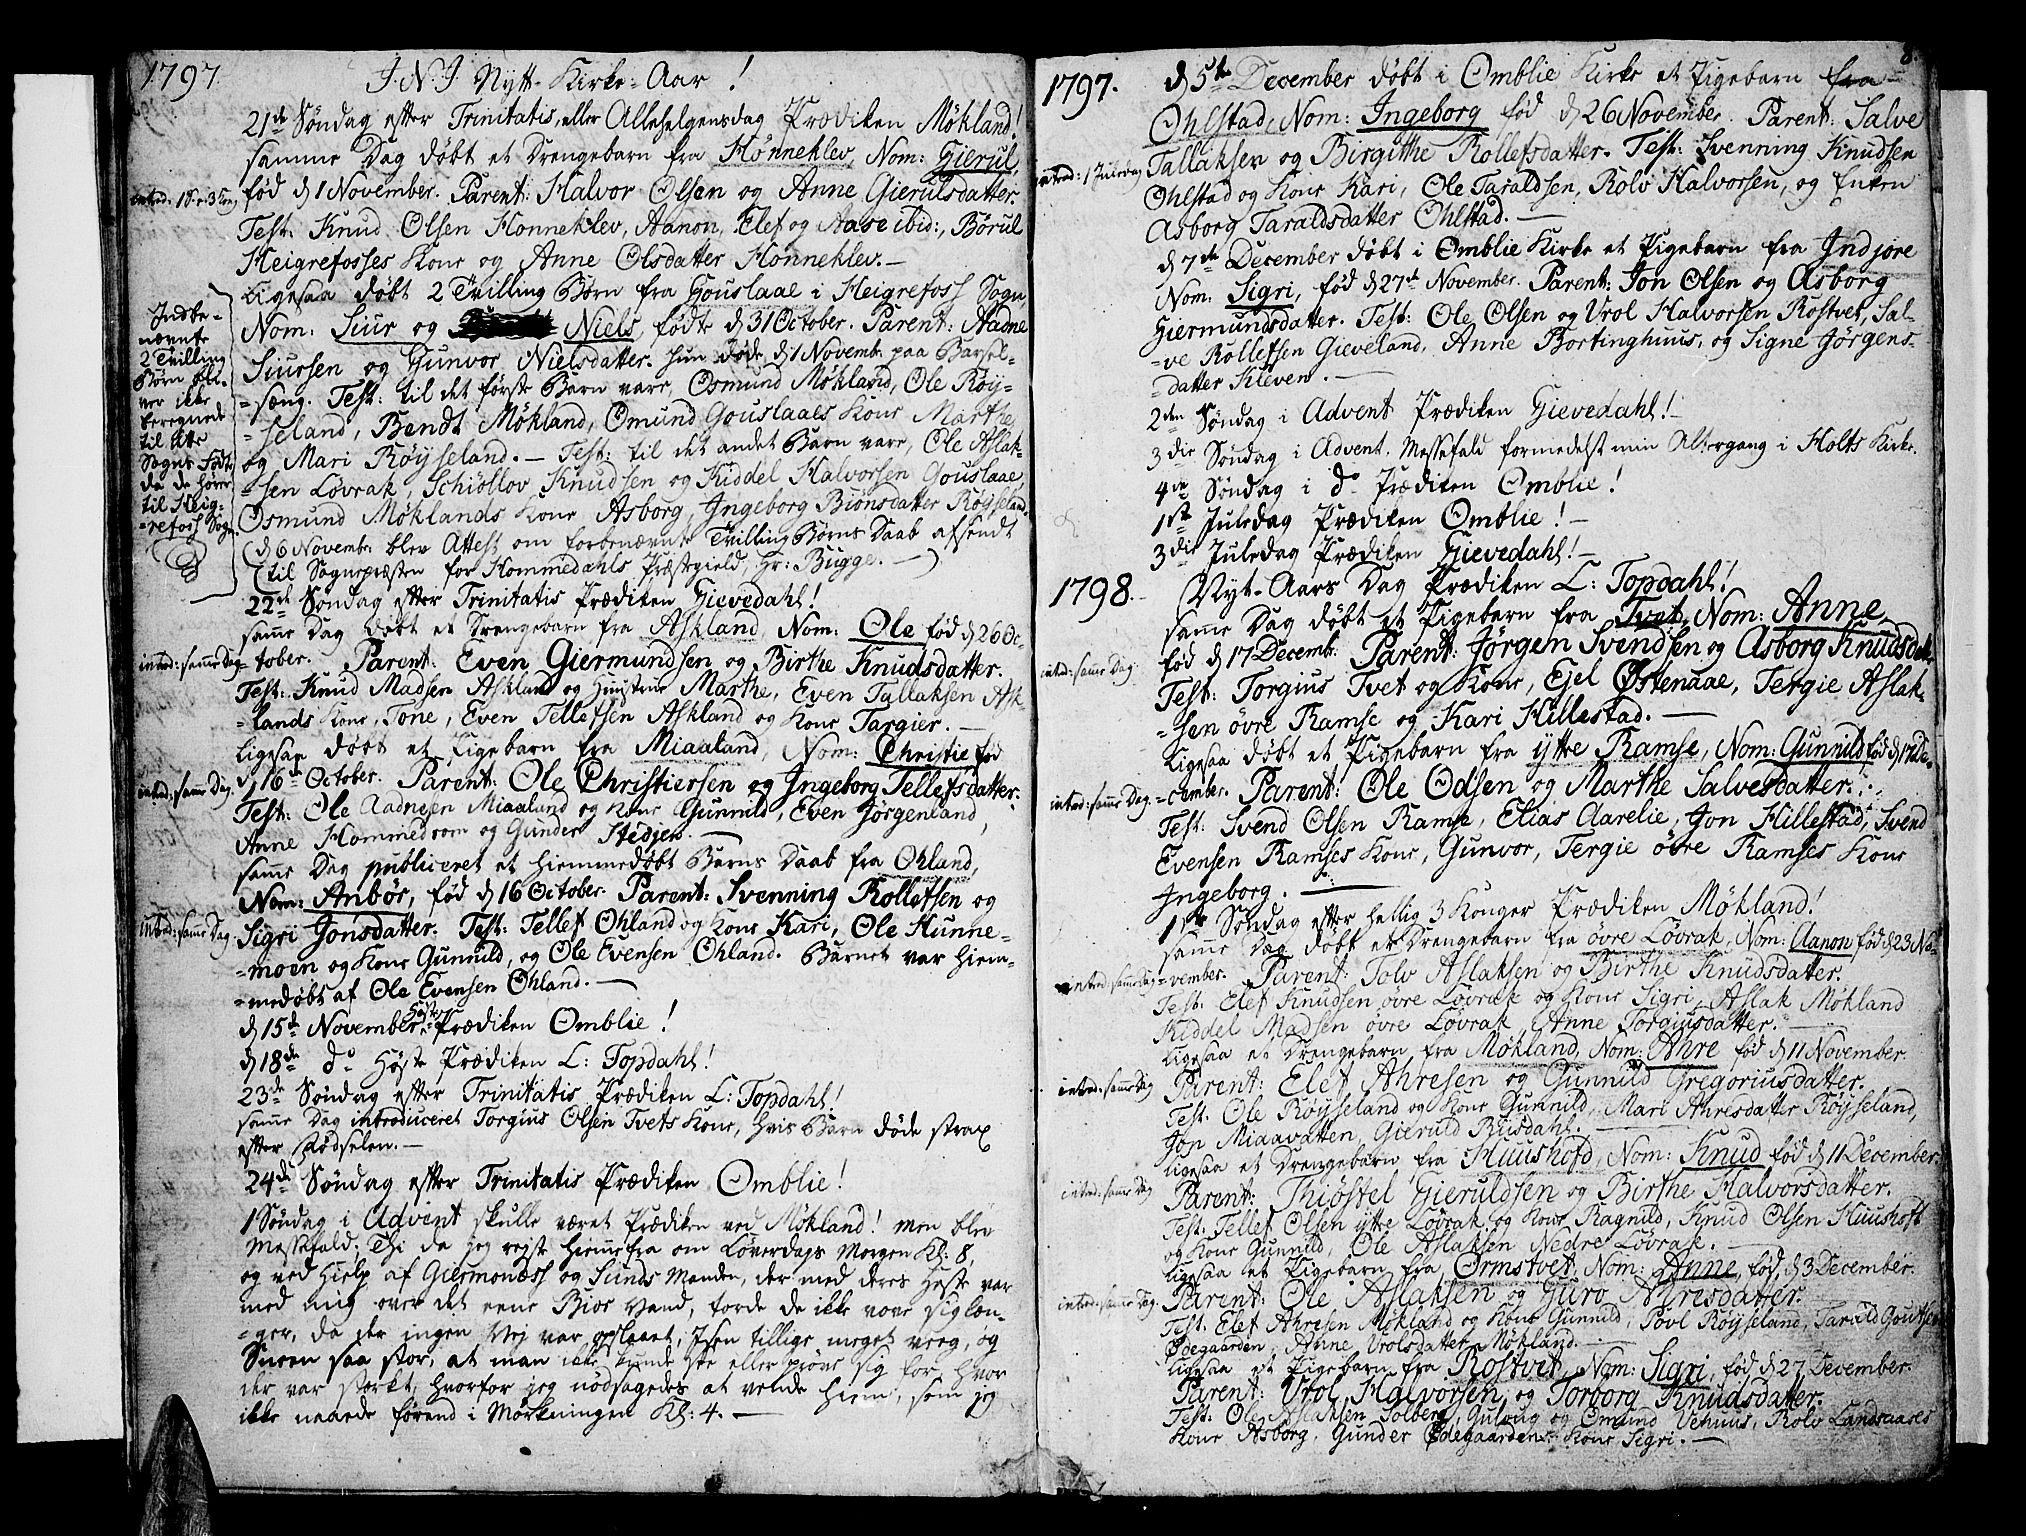 1797.
J. N. J. Nytt-Kirke-Aar!
21de Søndag efter Trinitatis, eller Allehelgensdag Prædiken Møkland!
samme Dag døbt et Drengebarn fra Hønneklev, Nom: Gierul,
fød d 1 November. Parent: Halvor Olsen og Anne Gierulsdatter.
Test: Knud Olsen Honneklev, Aanon, Elef og Aase ibid:, Børul
Heigrefosses Kone og Anne Olsdatter Hønneklev.—
Ligesaa døbt 2 Tvilling Børn fra Gouslaae i Heigrefoss Sogn,
Nom: Siur og Niels, fødte d 31 October. Parent: Aadne
Siursen og Gunvor Nielsdatter. hun døde d 1 Novemb: paa Barsel-
-sæng. Test: til det første Barn vare, Osmund Møkland, Ole Røy-
-seland, Bendt Møkland, Omund Gouslaaes Kone Marthe,
og Mari Røyseland.— Test: til det andet Barn vare, Ole Aslak-
-sen Løvrak, Schiøllov Knudsen og Kiddel Halvorsen Gouslaae,
Osmund Møklands Kone Asborg, Ingeborg Biønsdatter Røyseland.
(d 6 Novembr: blev Attest om forbenævnte Tvilling Børns Daab afsendt
til Sognepræsten for Hommedahls Præstegield, Hr: Bugge.—)
Indbe-
nævnte
2 Tvilling
Børn bli-
ver ikke
beregnede
til dette
Sogns Fødte
da de hører
til Heig-
-refoss Sogn.
22de Søndag efter Trinitatis Prædiken Gievedahl!
samme Dag døbt et Drengebarn fra Askland, Nom: Ole fød d 26 Oc-
intrd: samme Dag -tober. Parent: Even Giermundsen og Birthe Knudsdatter.
Test: Knud Madsen Askland og Huustrue Marthe, Even Tallaksen Ask-
-lands Kone, Tone, Even Tellefsen Askland og Kone Targier.—
Ligesaa døbt et Pigebarn fra Miaaland, Nom: Christie fød
d 16de October. Parent: Ole Christiersen og Ingeborg Tellefsdatter.
intrd: samme Dag. Test: Ole Aadnesen Miaaland og Kone Gunnild, Even Jørgenland,
Anne Hommedrom og Gunder Stedjer.—
samme Dag publiceret et hiemmedøbt Barns Daab fra Ohland,
Nom: Anbør, fød d 16 October. Parent: Svenning Rollefsen og
intrd: samme Dag Sigri Jonsdatter. Test: Tellef Ohland og Kone Kari, Ole Hunne-
-moen og Kone Gunnild, og Ole Evensen Ohland. Barnet var hiem-
-medøbt af Ole Evensen Ohland.—
d 15de November Høste Prædiken Omblie!
d 18de do Høste Prædiken L: Topdahl!
23de Søndag efter Trinitatis Prædiken L: Topdahl!
samme Dag introduceret Torgius Olsen Tvets Kone, hvis Barn døde strax
efter Fødselen.—
24de Søndag efter Trinitatis Prædiken Omblie!
1 Søndag i Advent skulle været Prædiken ved Møkland! men blev
Messefald; Thi da jeg reiste hiemmefra om Løverdags Morgen Kl: 8,
og ved hielp af Giermondss og Sunds Mænden, der med deres Heste var
med mig over det eene Bios Vand, torde de ikke vove sig læn-
-ger, da der ingen Vej var opslaaet, Isen tillige meget veeg, og
Sneen saa stor, at man ikke kunde see eller prøve sig for, hvor
der var stærkt, hvorfor jeg nødsagedes at vende hiem, som jeg
ikke naaede førend i Mørkningen Kl: 4.—
8.
1797. d 5te December døbt i Omblie Kirke et Pigebarn fra
Ohlstad, Nom: Ingeborg fød d 26 November. Parent: Salve
intrd: 1 Juledag Tallaksen og Birgithe Rollefsdatter. Test: Svenning Knudsen
Ohlstad og Kone Kari, Ole Taraldsen, Rolv Halvorsen, og Enken
Asborg Taraldsdatter Ohlstad.—
d 7de December døbt i Omblie Kirke et Pigebarn fra Indjore
Nom: Sigri, fød d 27de November. Parent: Jon Olsen og Asborg
Giermundsdatter. Test: Ole Olsen og Vrol Halvorsen Rostvet, Sal-
-ve Rollefsen Gieveland, Anne Bortinghuus, og Signe Jørgens-
-datter Kleven.—
2den Søndag i Advent Prædiken Gievedahl!—
3die Søndag i Advent. Messefald formedelst min Altergang i Holts Kirke.
4de Søndag i do Prædiken Omblie!
1ste Juledag Prædiken Omblie!—
3die Juledag Prædiken Gievedahl!—
1798. Nyt-Aars Dag Prædiken L: Topdahl!
samme Dag døbt et Pigebarn fra Tvet, Nom: Anne,
intrd: samme Dag. fød d 17 Decemb: Parent: Jørgen Svendsen og Asborg Knudsdat.
Test: Torgius Tvet og Kone, Ejel Østenaae, Tergie Aslak-
-sen øvre Ramse og Kari Hillestad.—
Ligesaa døbt et Pigebarn fra ytte Ramse, Nom: Gunnild fød d 17 De-
intrd: samme Dag. -cember. Parent: Ole Odsen og Marthe Salvesdatter.
Test: Svend Olsen Ramse, Elias Aarelie, Jon Hillestad, Svend
Evensen Ramses Kone, Gunvor, Tergie øvre Ramses Kone
Ingeborg.—
1ste Søndag efter hellig 3 Konger Prædiken Møkland!
samme Dag døbt et Drengebarn fra øvre Løvrak, Nom: Aanon fød d 23 No-
intrd: samme Dag -vember. Parent: Tolv Aslaksen og Birthe Knudsdatter.
Test: Elef Knudsen øvre Løvrak og Kone Sigri, Aslak Møkland
Kiddel Madsen øvre Løvrak, Anne Torgiusdatter.—
Ligesaa et Drengebarn fra Møkland, Nom: Ahre fød d 11 November.
intrd: samme Dag Parent: Elef Ahresen og Gunnild Gregoriusdatter.
Test: Ole Røyseland og Kone Gunnild, Mari Ahresdatter Røyseland,
Jon Miaavatten, Gieruld Rusdahl.—
Ligesaa et Drengebarn fra Huushofd, Nom: Knud fød d 11 December.
intrd: samme Dag Parent: Thiøstel Gieruldsen og Birthe Halvorsdatter.
Test: Tellef Olsen ytte Løvrak og Kone Ragnild, Knud Olsen Huushoft
og Kone Gunnild, Ole Aslaksen Nedre Løvrak.—
Ligesaa et Pigebarn fra Ormstvet, Nom: Anne, fød d 3 December.
intrd: samme Dag. Parent: Ole Aslaksen og Guro Ahresdatter.
Test: Elef Ahresen Møkland og Kone Gunnild, Povl Røyseland, Tarald
Ødegaarden, Anne Vrolsdatter Møkland.—
Ligesaa et Pigebarn fra Rostvet, Nom: Sigri, fød d 27 December.
Parent: Vrol Halvorsen og Torborg Knudsdatter.
Test: Ole Aslaksen Solberg, Guloug og Omund Vehuus, Rolv Landsaaes
Kone Asborg, Gunder Ødegaardens Kone Sigri.—